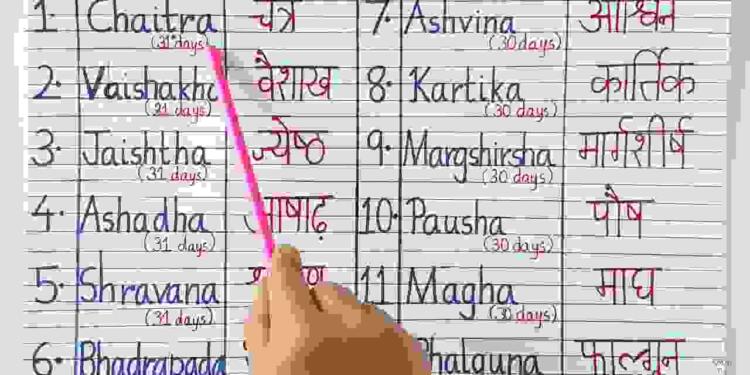 1. Chaitra चैत्र 7. Ashvina आश्विन
(31 days) (30 days)
2. Vaishakh वैशाख 8. Kartika कार्तिक
(31 days) (30 days)
3. Jaishtha ज्येष्ठ 9. Margshirsha मार्गशीर्ष
(31 days) (30 days)
4. Ashadha आषाढ़ 10. Pausha पौष
(31 days) (30 days)
5. Shravana 11 Magha माघ
(31 days) (30 days)
6. Bhadrapada halguna फाल्गुन